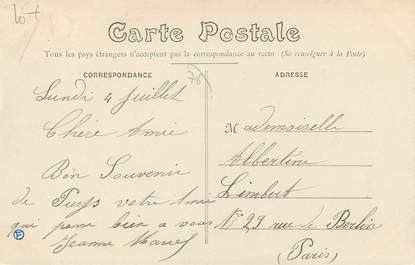 Lot
Carte Postale
Tous les pays étrangers n'acceptent pas la correspondance au recto (Se renseigner à la Poste)
CORRESPONDANCE
78
ADRESSE
Lundi 4 Juillet
Chère Amie
Bon Souvenir
de votre Amie
qui pense bien a vous
Jeanne
Mademoiselle
Albertine
Limbert
N° 29 rue de Berlin
(Paris)